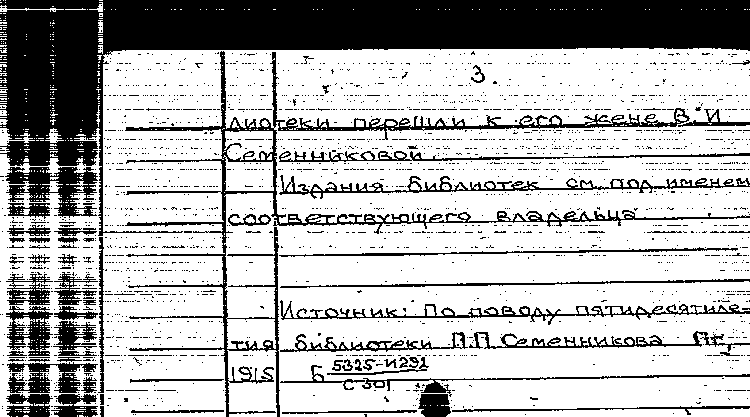 3.
лиотеки перешли к его жене В.И
Семенниковой.
Издания библиотек см. под именем
соответствующего владельца
Источник: По поводу пятидесятиле-
тия библиотеки П.П. Семенникова. Пг,
1915 Б 5325-И291
С 301